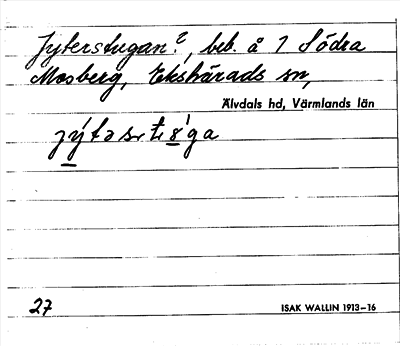 Jyterstugan?, beb. å 1 Södra
Mosberg, Ekshärads sn,
Älvdals hd, Värmlands län
27
ISAK WALLIN 1913–16